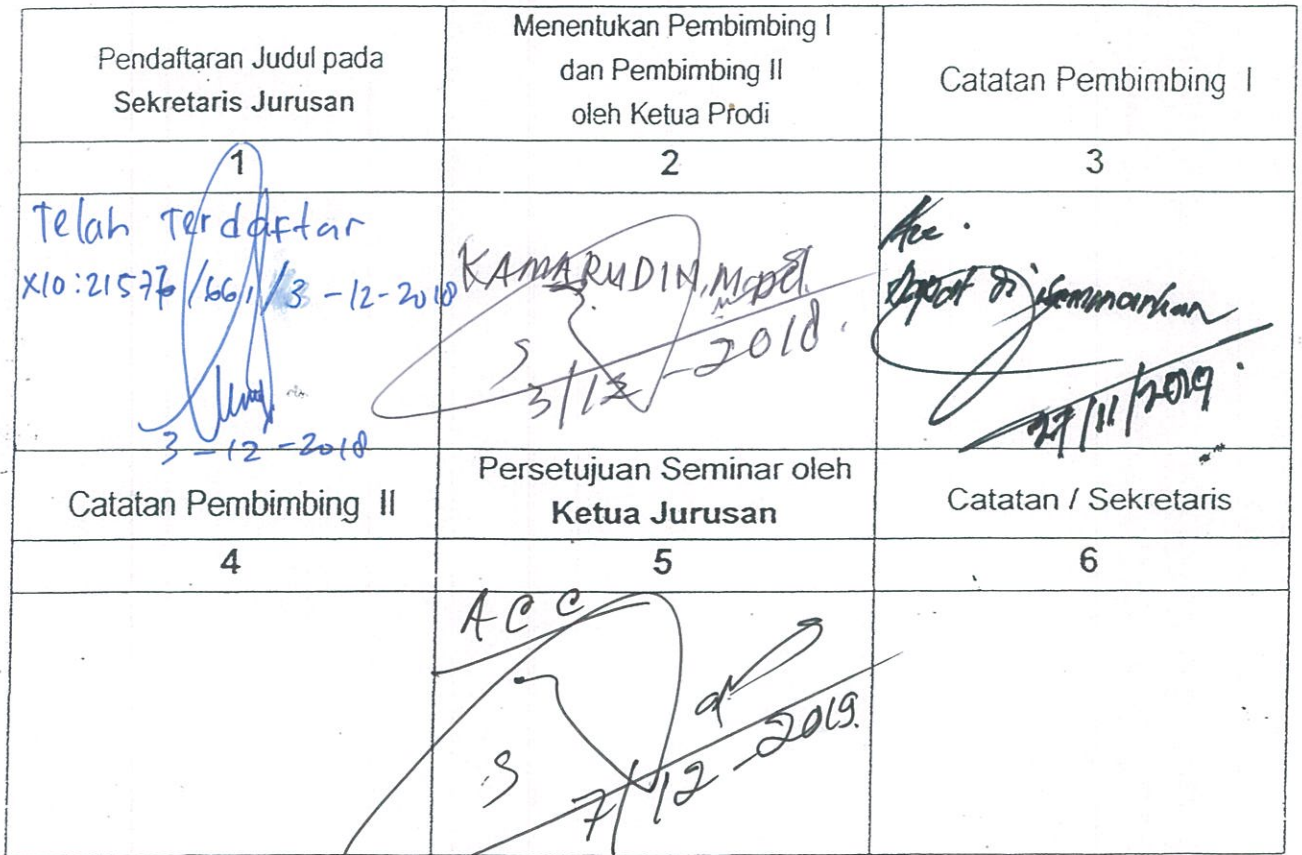 Pendaftaran Judul pada
Sekretaris Jurusan
Menentukan Pembimbing I
dan Pembimbing II
oleh Ketua Prodi
Catatan Pembimbing I
1
2
3
Telah Terdaftar
X10:21576/661/3-12-2018
3-12-2018
KAMARUDIN, M.pd.
3/12-2018.
Acc.
Dapat di seminarkan
27/11/2019.
Catatan Pembimbing II
Persetujuan Seminar oleh
Ketua Jurusan
Catatan / Sekretaris
4
5
6
ACC
7/12-2019.